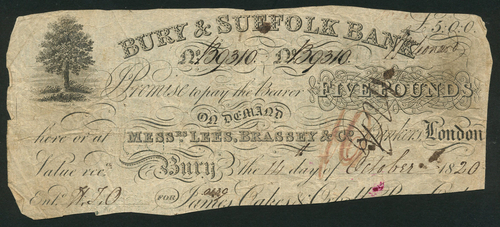 £5:0:0
BURY & SUFFOLK BANK
No B9310. No B9310.
Promise to pay the Bearer FIVE POUNDS
ON DEMAND
here or at MESSRS LEES, BRASSEY & Co. Bankers London
Value recd. Bury the 14 day of October 1820
Entd. FOR James Oakes &